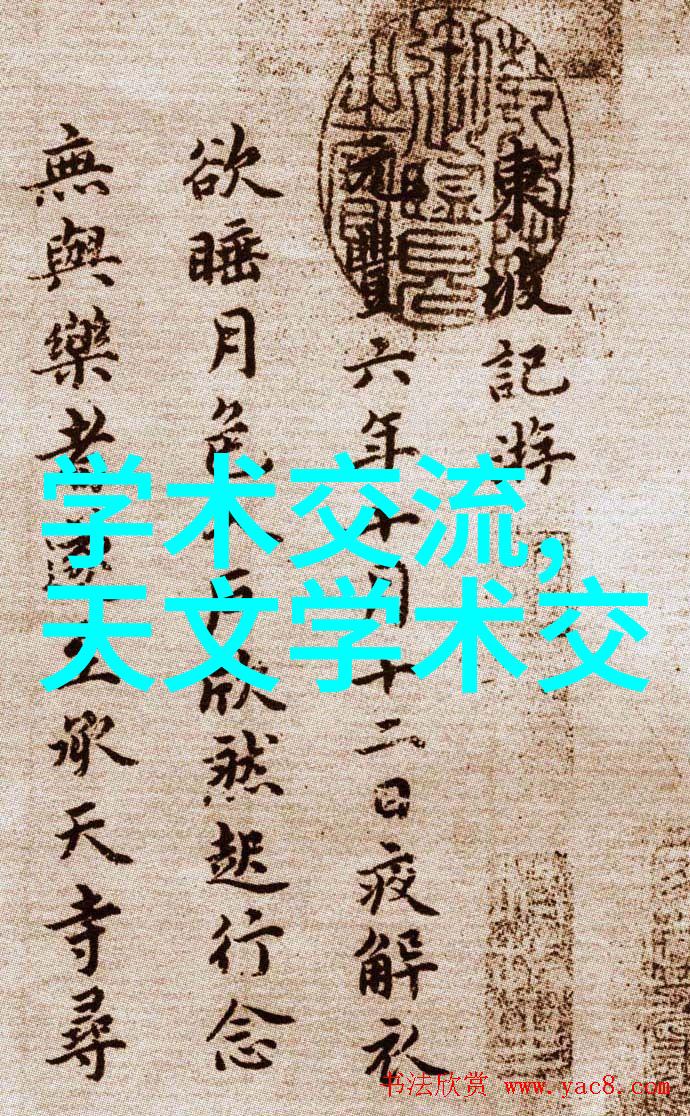 東坡記游
元豐六年十月十二日夜解衣
欲睡月色入戶欣然起行念
無與樂者遂至承天寺尋
学术交流,
天文学术交
书法欣赏 www.yac8.com